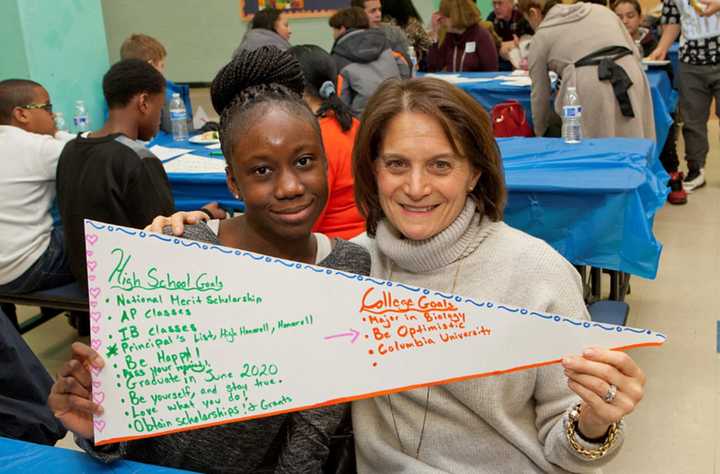 High School Goals
• National Merit Scholarship
• AP classes
• IB classes
* Principal's List, High Honor roll, Honor roll
• Be Happy!!
• Pass your regents!
• Graduate in June 2020
• Be yourself, and stay true.
• Love what you do!
• Obtain scholarships & Grants
College Goals
• Major in Biology
• Be Optimistic
• Columbia University
•